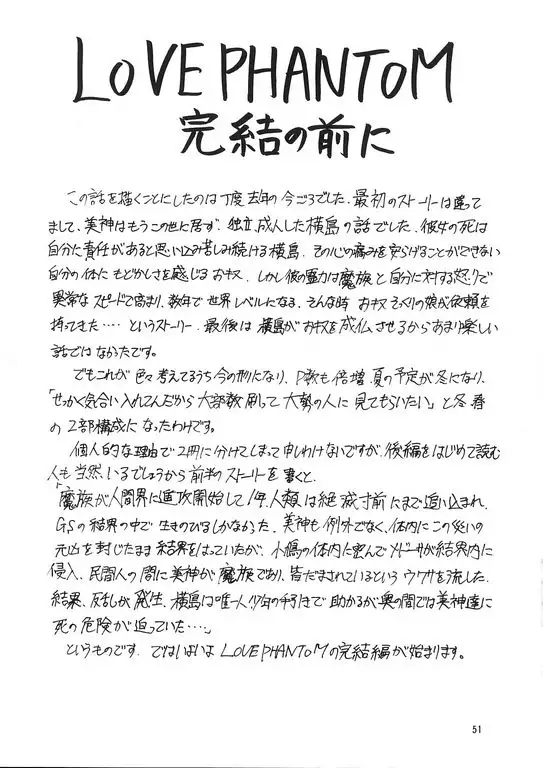 LOVE PHANTOM
完結の前に
この話を描くことにしたのは丁度去年の今ごろでした。最初のストーリーは違って
まして、美神はもうこの世に居ず、独立、成人した横島の話でした。彼女の死は
自分に責任があると思い込み苦しみ続ける横島、その心の痛みを安らげることができない
自分の体にもどかしさを感じるおキヌ、しかし彼の霊力は魔族と自分に対する怒りで
異常なスピードで高まり、数年で世界レベルになる。そんな時おキヌそっくりの娘が依頼を
持ってきた‥‥というストーリー。最後は横島がおキヌを成仏させるからあまり楽しい
話ではなかったです。
でもこれが色々考えてるうち今の形になり、P数も倍増、夏の予定が冬になり、
「せっかく気合い入れてんだから大部数刷って大勢の人に見てもらいたい」と冬春
の2部構成になったわけです。
個人的な理由で2冊に分けてしまって申しわけないですが、後編をはじめて読む
人も当然いるでしょうから前半のストーリーを書くと、
「魔族が人間界に進攻開始して1年、人類は絶滅寸前にまで追い込まれ、
GSの結界の中で生きのびるしかなかった。美神も例外でなく、体内にこの災いの
元凶を封じたまま結界をはっていたが、小鳩の体内に潜んでメドーサが結界内に
侵入、民間人の間に美神が魔族であり、皆だまされているというウワサを流した。
結果、反乱が発生、横島は唯一人少年の手引きで助かるが奥の間では美神達に
死の危険が迫っていた‥‥」
というものです。ではいよいよLOVE PHANTOMの完結編が始まります。
51